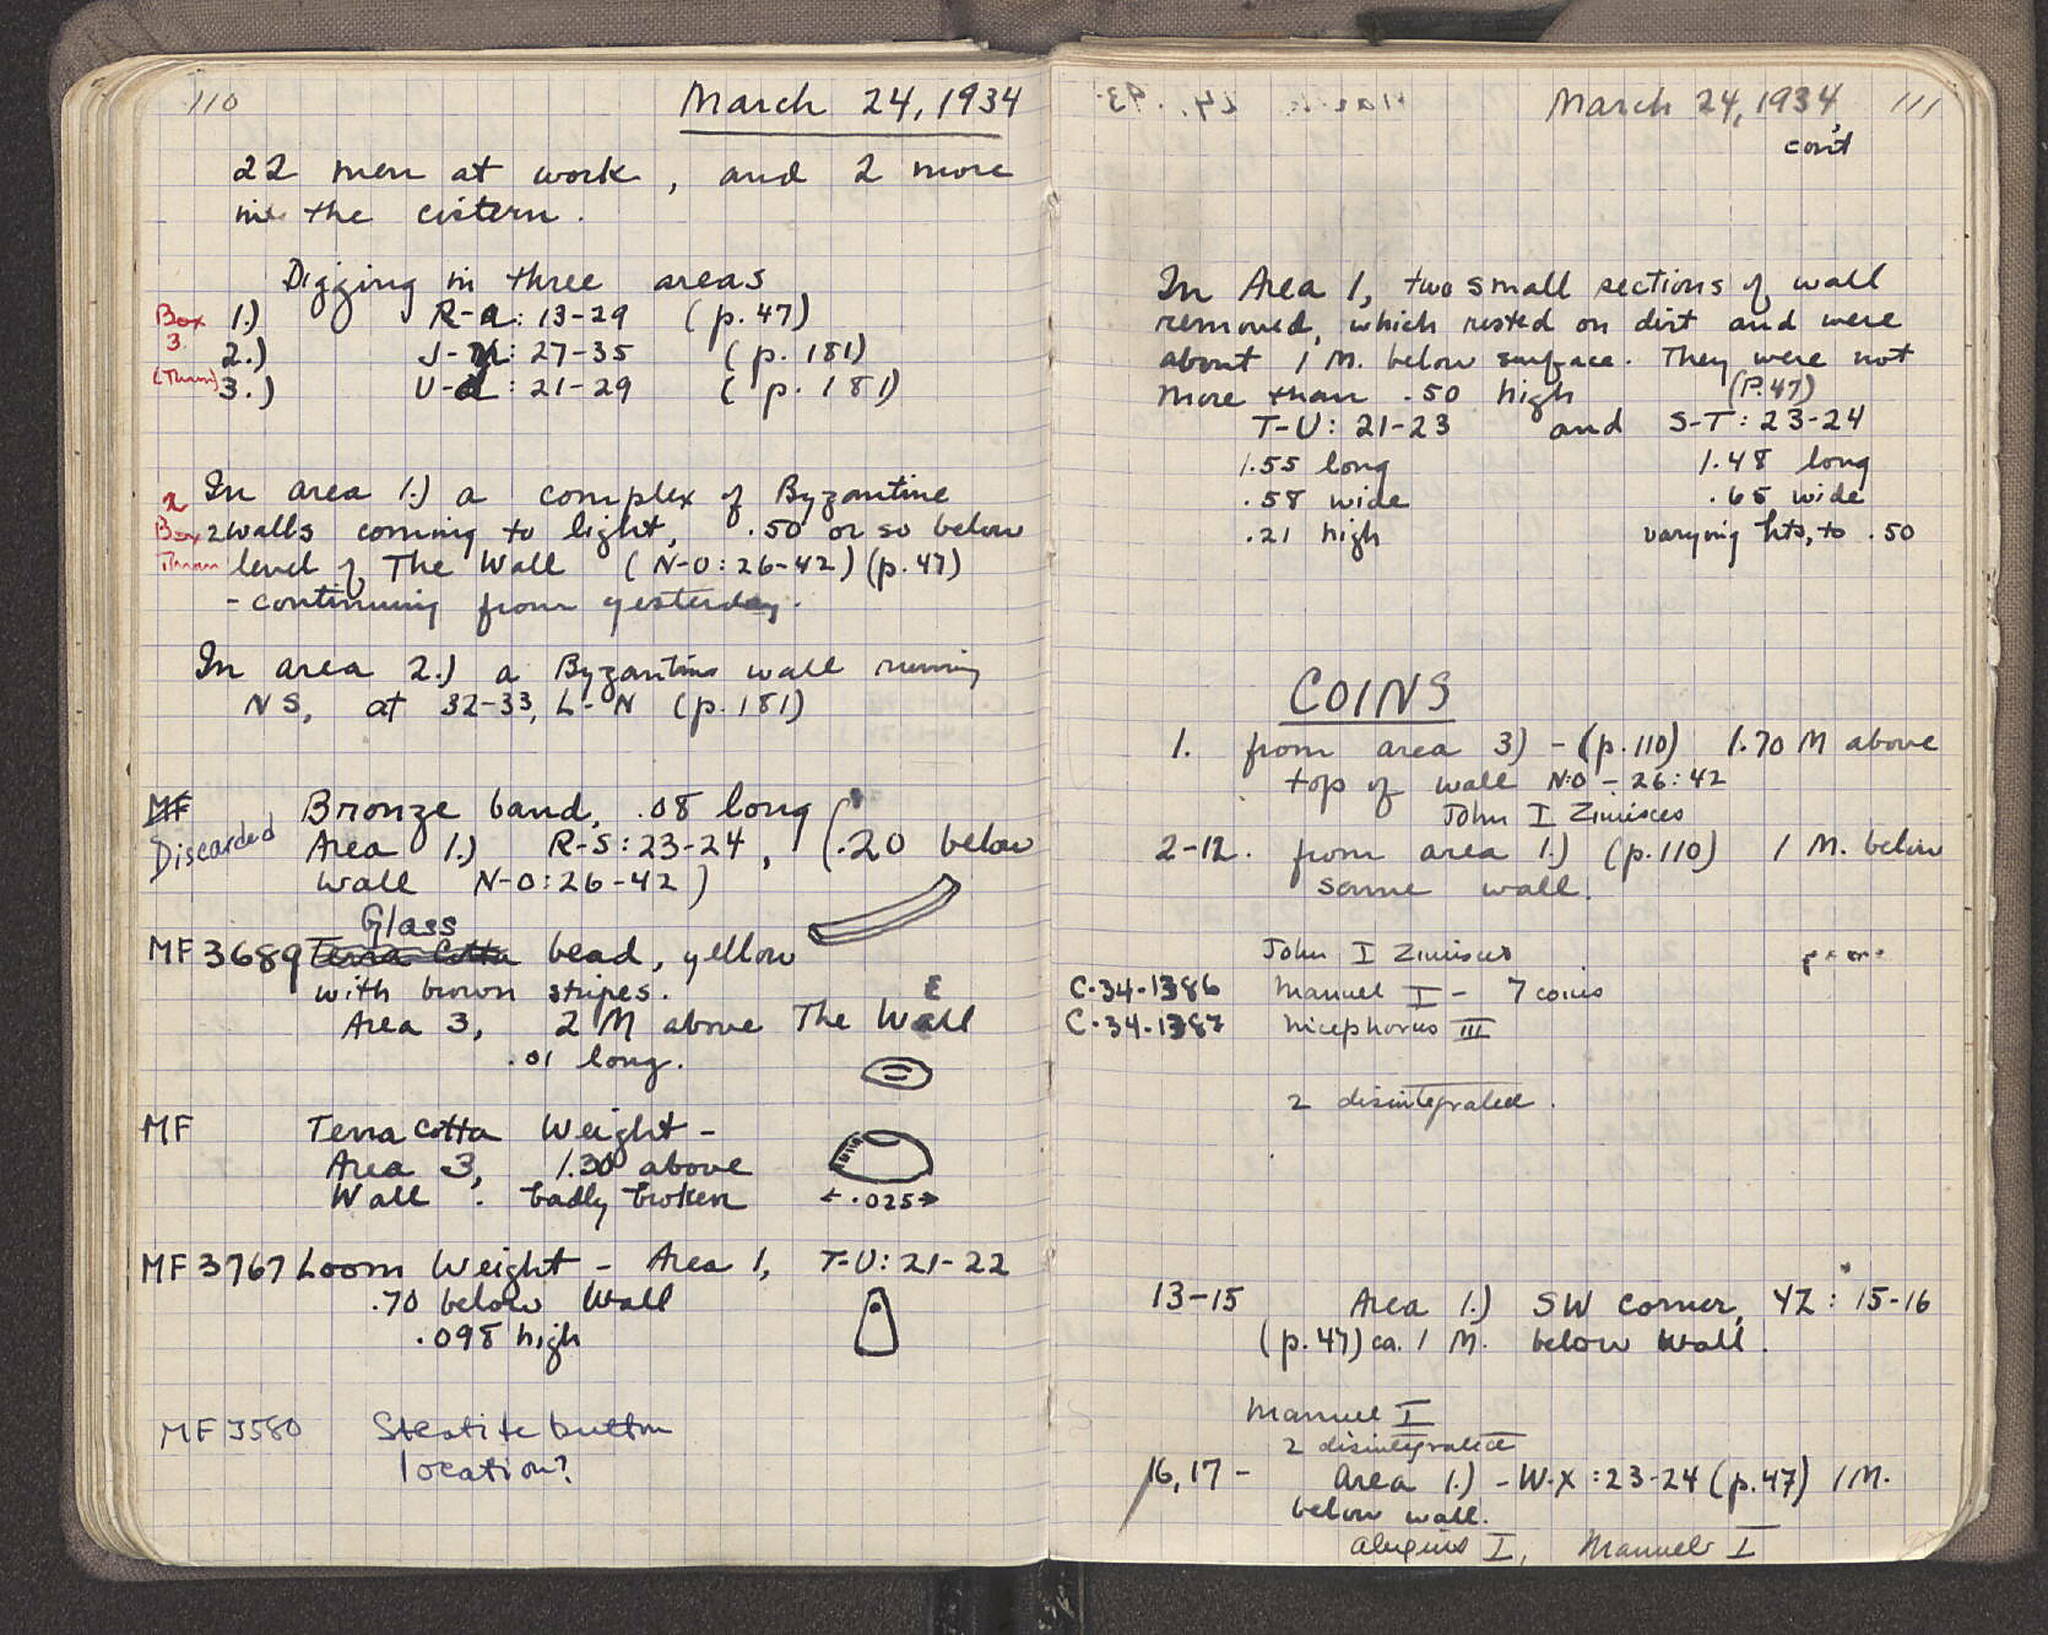 110
March 24, 1934
22 men at work, and 2 more
in the cistern.
Digging in three areas
Box 1.) R-a: 13-29 (p. 47)
3. 2.) J-N: 27-35 (p. 181)
3.) U-d: 21-29 (p. 181)
2 In area 1.) a complex of Byzantine
Box 2 walls coming to light, .50 or so below
level of The Wall (N-O: 26-42) (p. 47)
- continuing from yesterday.
In area 2.) a Byzantine wall running
NS, at 32-33, L-N (p. 181)
MF Bronze band, .08 long
Discarded Area 1.) R-S: 23-24, (.20 below
wall N-O: 26-42)
Glass
MF 3689 Terra Cotta bead, yellow
with brown stripes.
Area 3, 2 M above The Wall
.01 long.
MF Terra cotta Weight -
Area 3, 1.30 above
Wall. badly broken
.025
MF 3767 Loom Weight - Area 1, T-U: 21-22
.70 below Wall
.098 high
MF 3580 Steatite button
location?
March 24, 1934, 111
con't
In Area 1, two small sections of wall
removed, which rested on dirt and were
about 1 M. below surface. They were not
more than .50 high (P. 47)
T-U: 21-23 and S-T: 23-24
1.55 long 1.48 long
.58 wide .65 wide
.21 high varying hts, to .50
COINS
1. from area 3) - (p. 110) 1.70 M above
top of wall N-O - 26:42
John I Zimisces
2-12. from area 1.) (p. 110) 1 M. below
same wall.
John I Zimisces
C-34-1386 Manuel I - 7 coins
C-34-1387 Nicephorus III
2 disintegrated.
13-15 Area 1.) SW corner, YZ: 15-16
(p. 47) ca. 1 M. below Wall.
Manuel I
2 disintegrated
16, 17 - Area 1.) - W-X: 23-24 (p. 47) 1 M.
below wall.
Alexius I, Manuel I